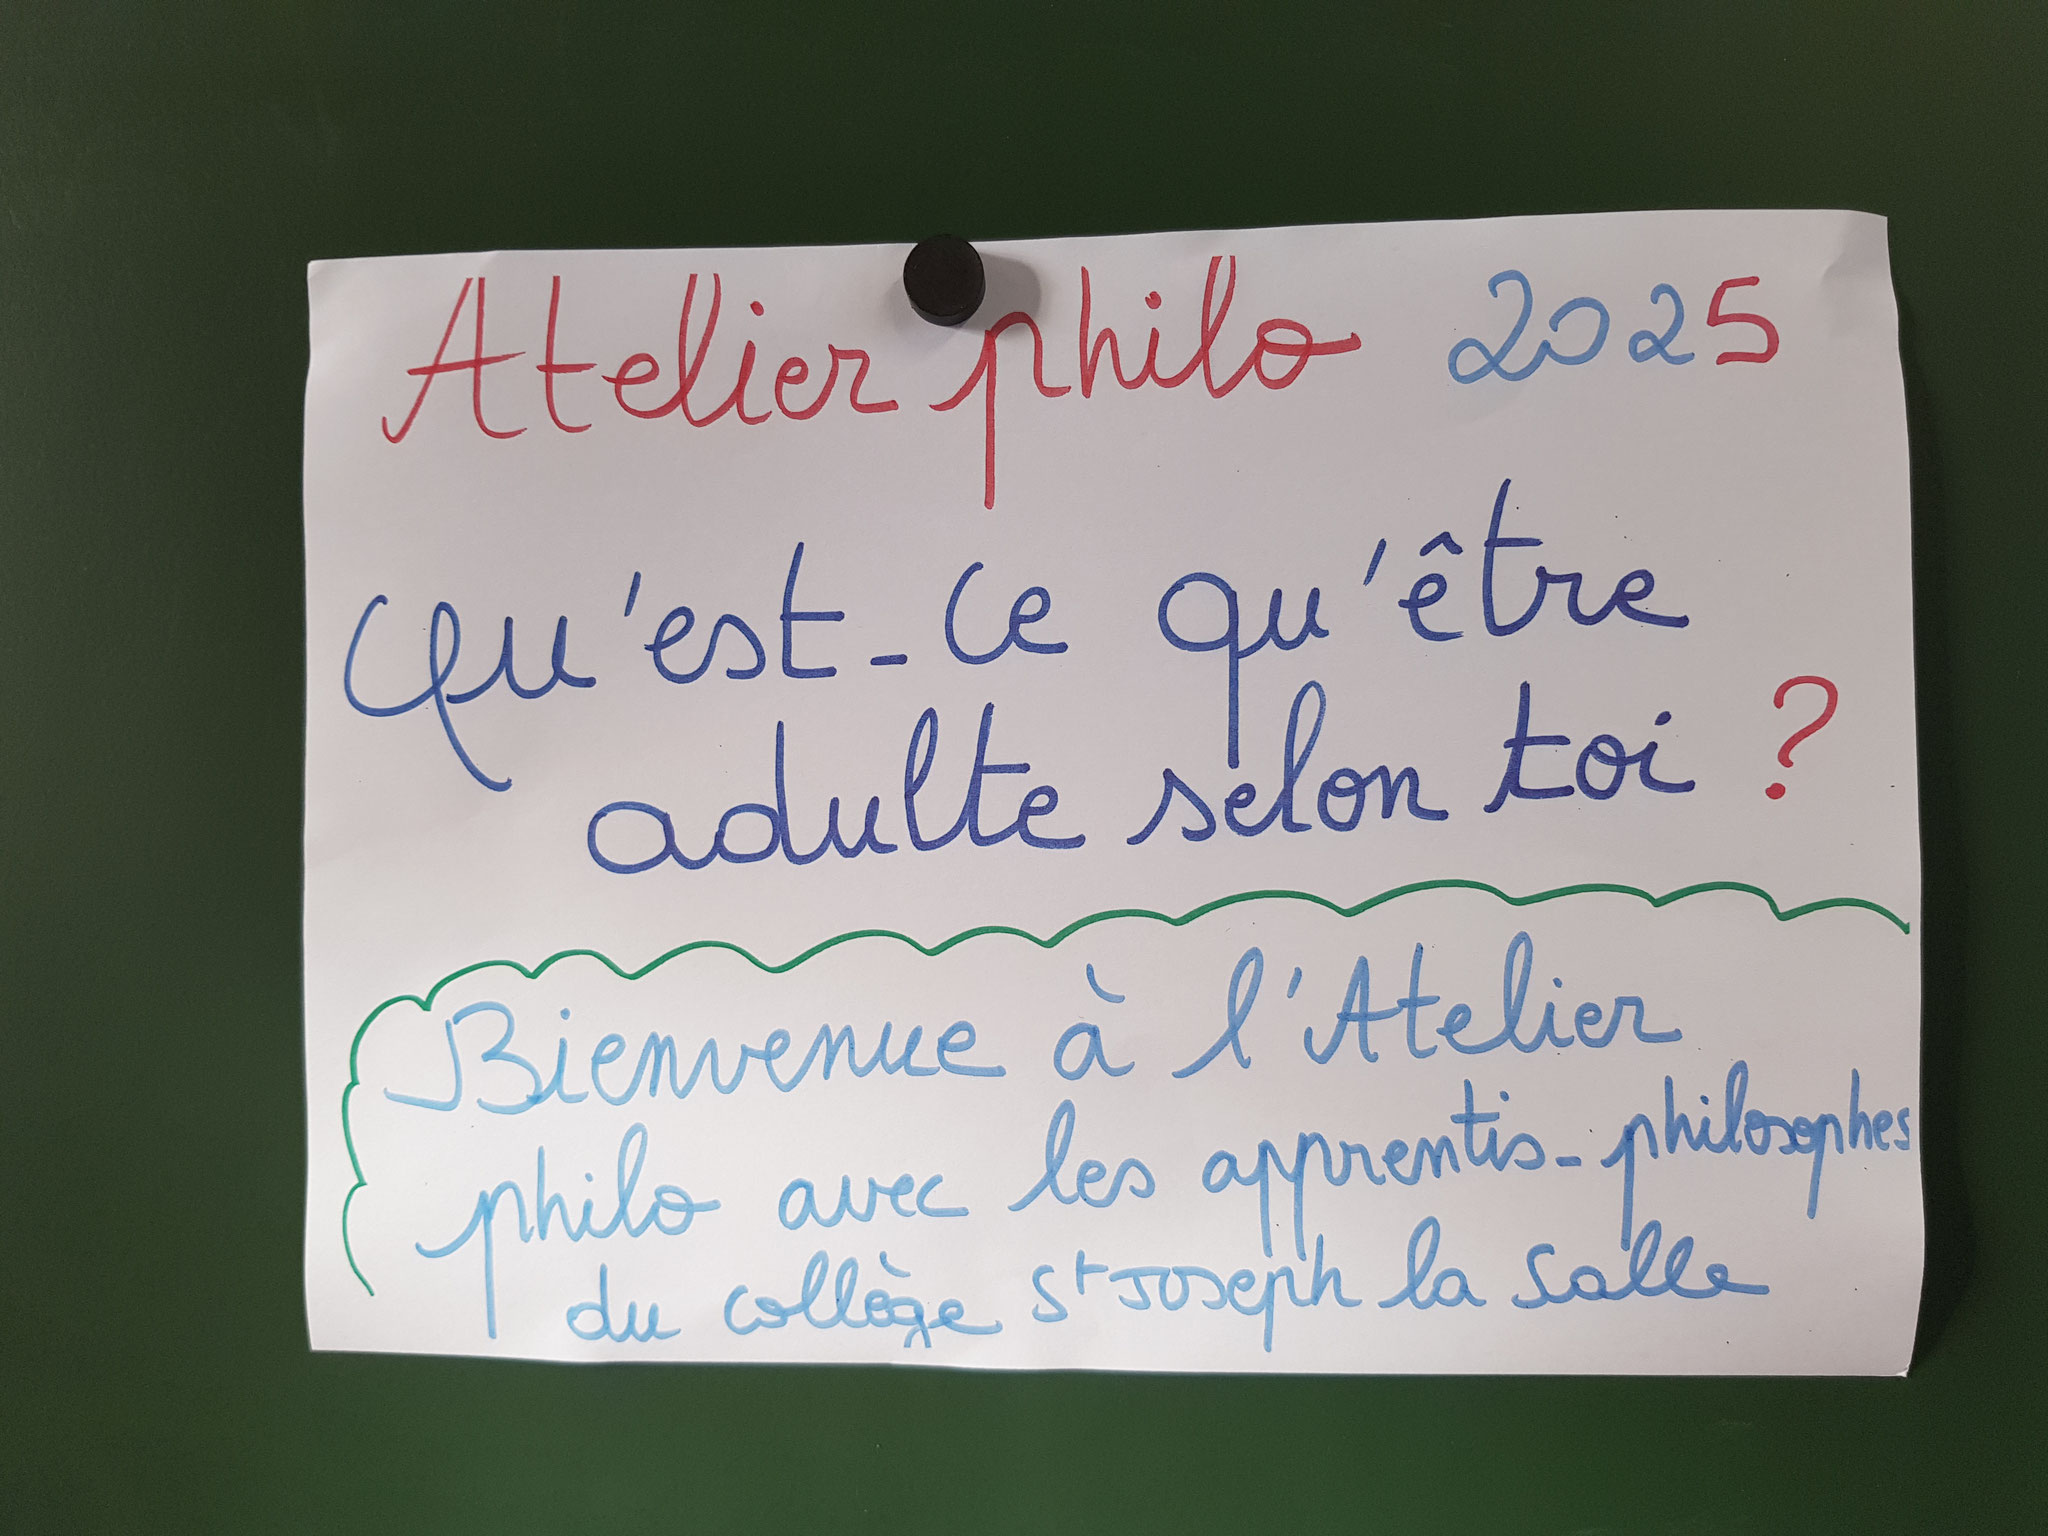 Atelier philo 2025
Qu'est-ce qu'être
adulte selon toi ?
Bienvenue à l'Atelier
philo avec les apprentis-philosophes
du collège St Joseph la Salle